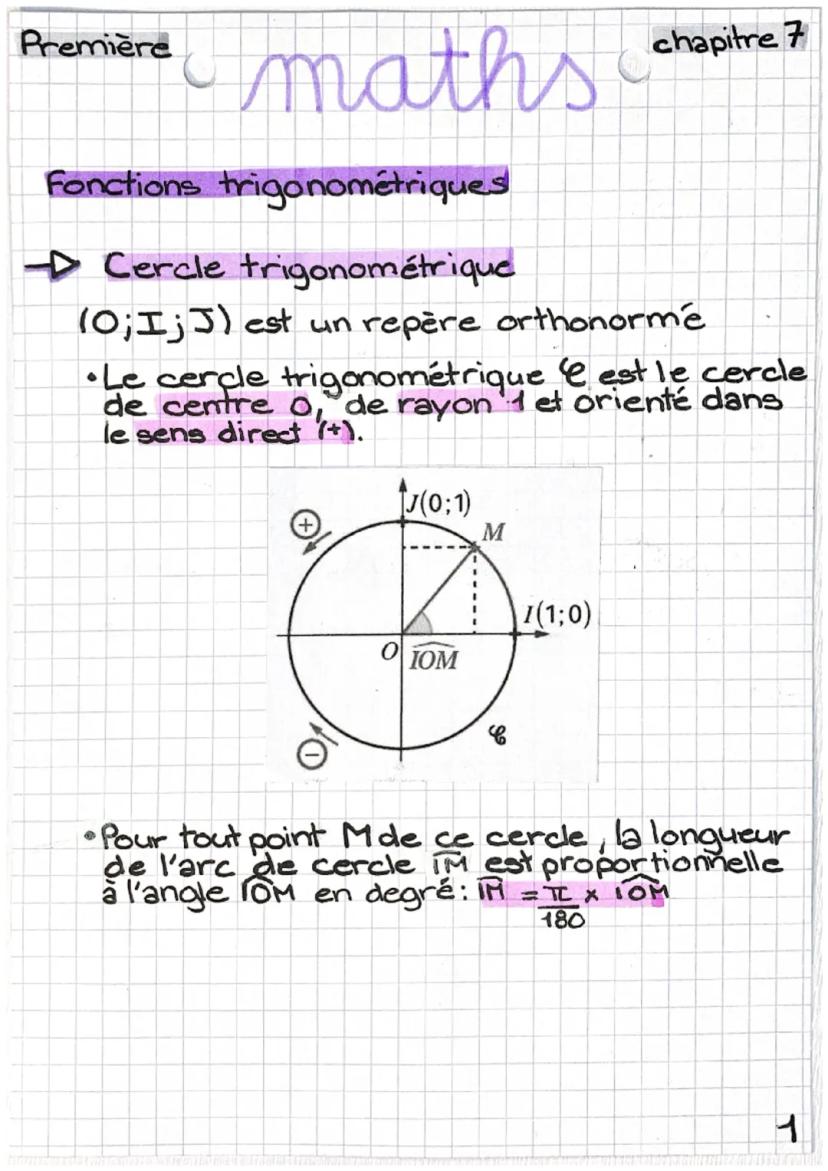 Première
maths
chapitre 7
Fonctions trigonométriques
Cercle trigonométrique
(O;I;J) est un repère orthonormé
•Le cercle trigonométrique 𝒞 est le cercle
de centre O, de rayon 1 et orienté dans
le sens direct (+).
J(0;1)
+
M
I(1;0)
O
IOM
−
𝒞
•Pour tout point M de ce cercle, la longueur
de l'arc de cercle IM est proportionnelle
à l'angle IOM en degré: IM = π/180 × IOM
1